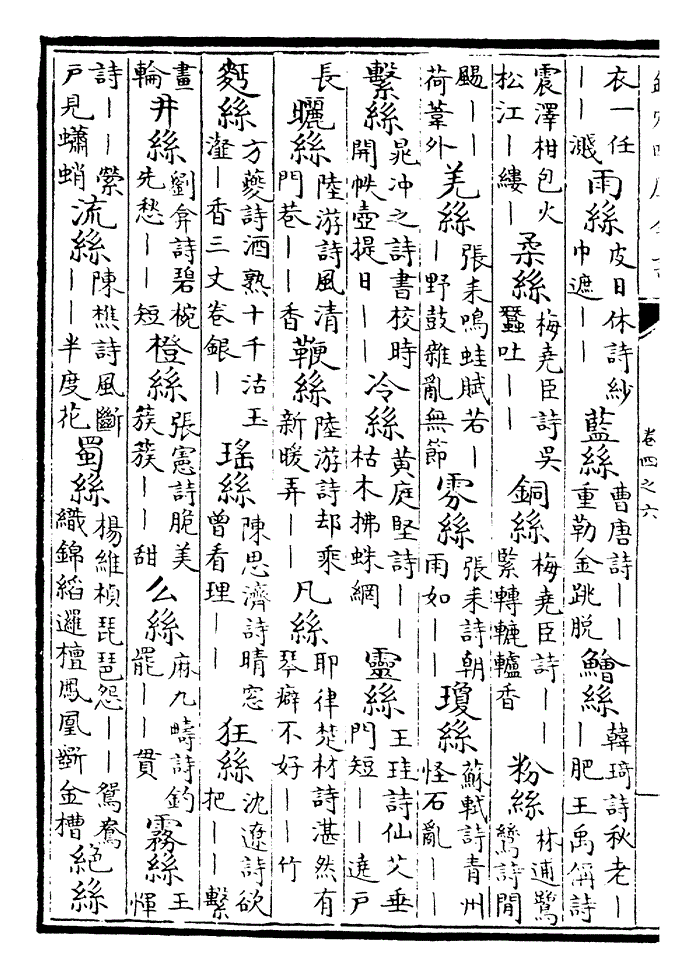 卷四之六
衣一任——濺 雨絲 皮日休詩紗巾遮—— 藍絲 曹唐詩——重勒金跳脫 鱠絲 韓琦詩秋老——肥王禹偁詩
震澤柑包火松江—縷— 柔絲 梅堯臣詩吳蠶吐—— 銅絲 梅堯臣詩——緊轉轆轤香 粉絲 林逋鷺鷥詩閒
——荷葦外 羌絲 張耒鳴蛙賦若——野鼓雜亂無節 雰絲 張耒詩朝雨如—— 瓊絲 蘇軾詩青州怪石亂——
繫絲 晁冲之詩書校時開帙壺提日—— 冷絲 黃庭堅詩——枯木拂蛛網 靈絲 王珪詩仙艾垂門短——遶戶
長 曬絲 陸游詩風清門巷——香 鞭絲 陸游詩却乘新暖弄—— 凡絲 耶律楚材詩湛然有琴癖不好——竹
麪絲 方夔詩酒熟十千沽玉瀣—香三丈卷銀— 瑤絲 陳思濟詩晴窓曾看理—— 狂絲 沈遼詩欲把——繫
畫輪 井絲 劉弇詩碧椀先愁——短 橙絲 張憲詩脆美蔟蔟——甜 么絲 麻九疇詩釣罷——貫 霧絲 王惲
詩——縈戶見蠨蛸 流絲 陳樵詩風斷——半度花 蜀絲 楊維楨琵琶怨——鴛鴦織錦縚邏檀鳳凰斵金槽 絕絲